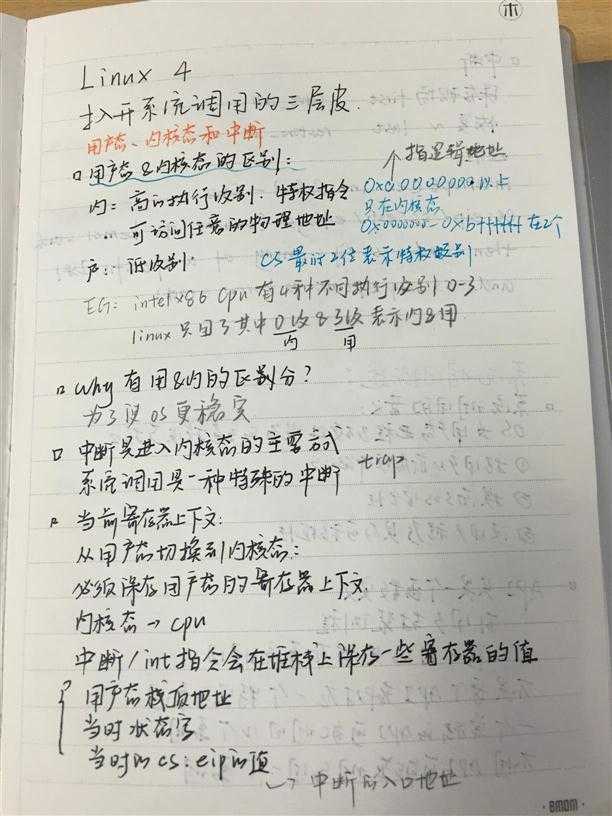 木
Linux 4
扒开系统调用的三层皮.
用户态、内核态和中断
用户态&内核态的区别:
指逻辑地址
内: 高的执行级别. 特权指令
可访问任意的物理地址
0xc0000000以上
只在内核态
0x0000000~0xbfffffff在2个
户: 低级别
CS最低2位表示特权级别
EG: intel x86 cpu有4种不同执行级别 0-3
linux 只用了其中0级&3级表示内&用
内 用
why 有用&内的区别分?
为了让OS更稳定
中断是进入内核态的主要方式
系统调用是一种特殊的中断 trap
当前寄存器上下文:
从用户态切换到内核态:
必须保存用户态的寄存器上下文.
内核态→cpu
中断/int指令会在堆栈上保存一些寄存器的值
用户态栈顶地址
当时状态字
当时的cs:eip的值
→中断的入口地址
BMOM